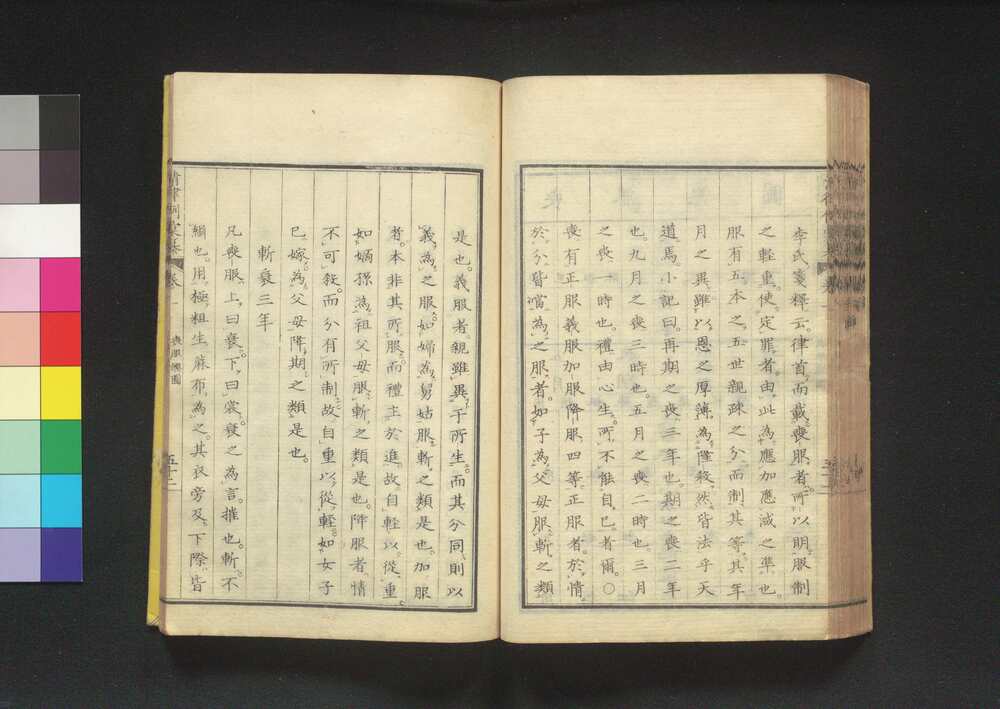 李氏箋釋云。律首而載喪服者。所以明服制
之輕重。使定罪者由此為應加應減之準也。
服有五。本之五世親疎之分而制其等。其年
月之異。雖以恩之厚薄為隆殺。然皆法乎天
道。馬小記曰。再期之喪三年也。期之喪二年
也。九月之喪三時也。五月之喪二時也。三月
之喪一時也。禮由心生。所不能自已者爾。○
喪有正服義服加服降服四等。正服者。於情
於分皆當為之服者。如子為父母服斬之類
是也。義服者。親雖異于所生。而其分同。則以
義為之服。如婦為舅姑服斬之類是也。加服
者。本非其所服。而禮主於進。故自輕以從重。
如嫡孫為祖父母服斬之類是也。降服者。情
不可殺。而分有所制。故自重以從輕。如女子
已嫁為父母降期之類是也。
斬衰三年
凡喪服上曰衰。下曰裳。衰之為言摧也。斬不
緝也。用極粗生麻布為之。其衣旁及下際皆
清律例彙纂
卷一
喪服總圖
五十二